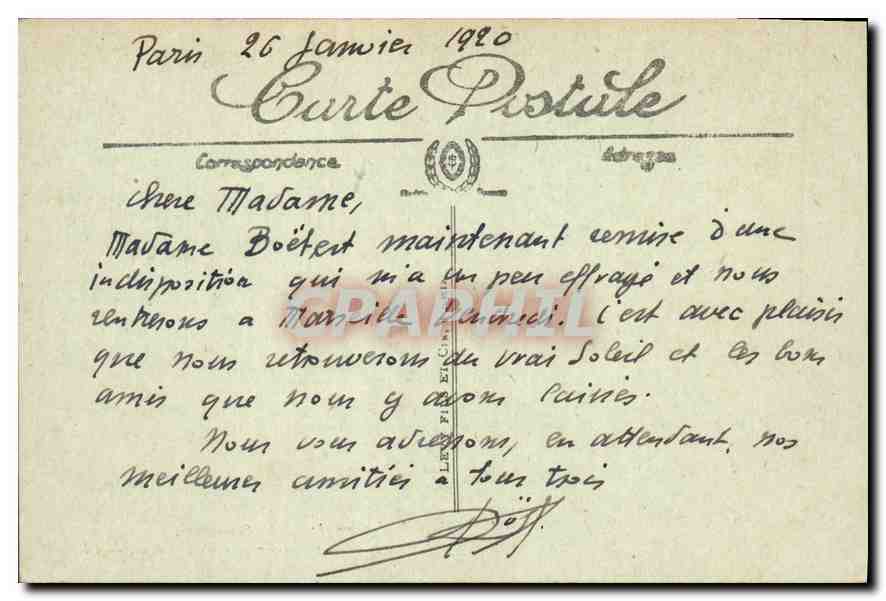 Paris 26 Janvier 1920
Carte Postale
Correspondance
Adresse
Chere Madame,
Madame Boët est maintenant remise d'une
indisposition qui m'a un peu effrayé et nous
rentrerons a Marseille Vendredi. C'est avec plaisir
que nous retrouverons du vrai Soleil et les bons
amis que nous y avons laissés.
Nous vous adressons, en attendant, nos
meilleures amitiés a tous trois
LEVY FILS ET CIE
CPAPHIL